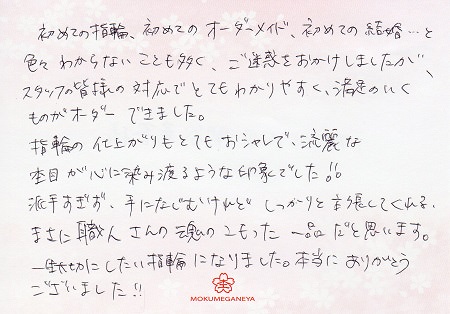 初めての指輪、初めてのオーダーメイド、初めての結婚…と
色々わからないことも多く、ご迷惑をおかけしましたが、
スタッフの皆様の対応でとてもわかりやすく、満足のいく
ものがオーダーできました。
指輪の仕上がりもとてもおシャレで、流麗な
杢目が心に染み渡るような印象でした!!
派手すぎず、手になじむけれど しっかりと主張してくれる、
まさに職人さんの魂のこもった一品だと思います。
一生大切にしたい指輪になりました。本当にありがとう
ございました!!
MOKUMEGANEYA